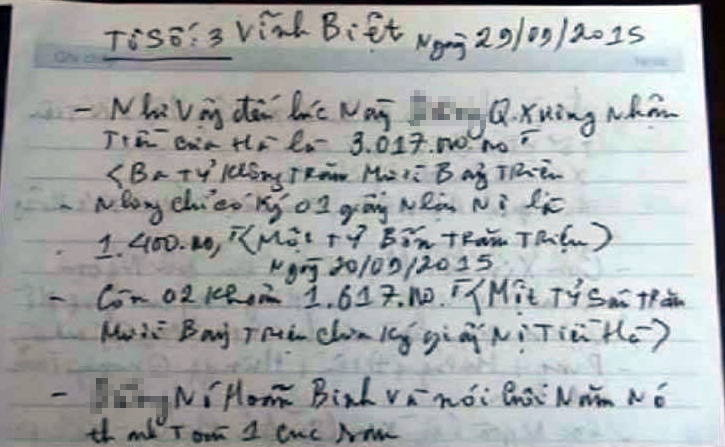 Tờ Số: 3 Vĩnh Biệt Ngày 29/09/2015
Ghi chú
- Như Vậy đến lúc Này Q. Xương Nhận
Tiền của Hà là 3.017.000.000đ
<Ba Tỷ Không Trăm Mười Bảy Triệu
Nhưng chỉ có Ký 01 giấy Nhận Nợ là
1.400.000,đ <Một Tỷ Bốn Trăm Triệu>
Ngày 20/09/2015
- Còn 02 Khoản 1.617.000đ <Một Tỷ Sáu Trăm
Mười Bảy Triệu chưa Ký giấy Nợ Tiền Hà>
- Nó Hoãn Binh Và nói Cuối Năm Nó
thanh Toán 1 cục